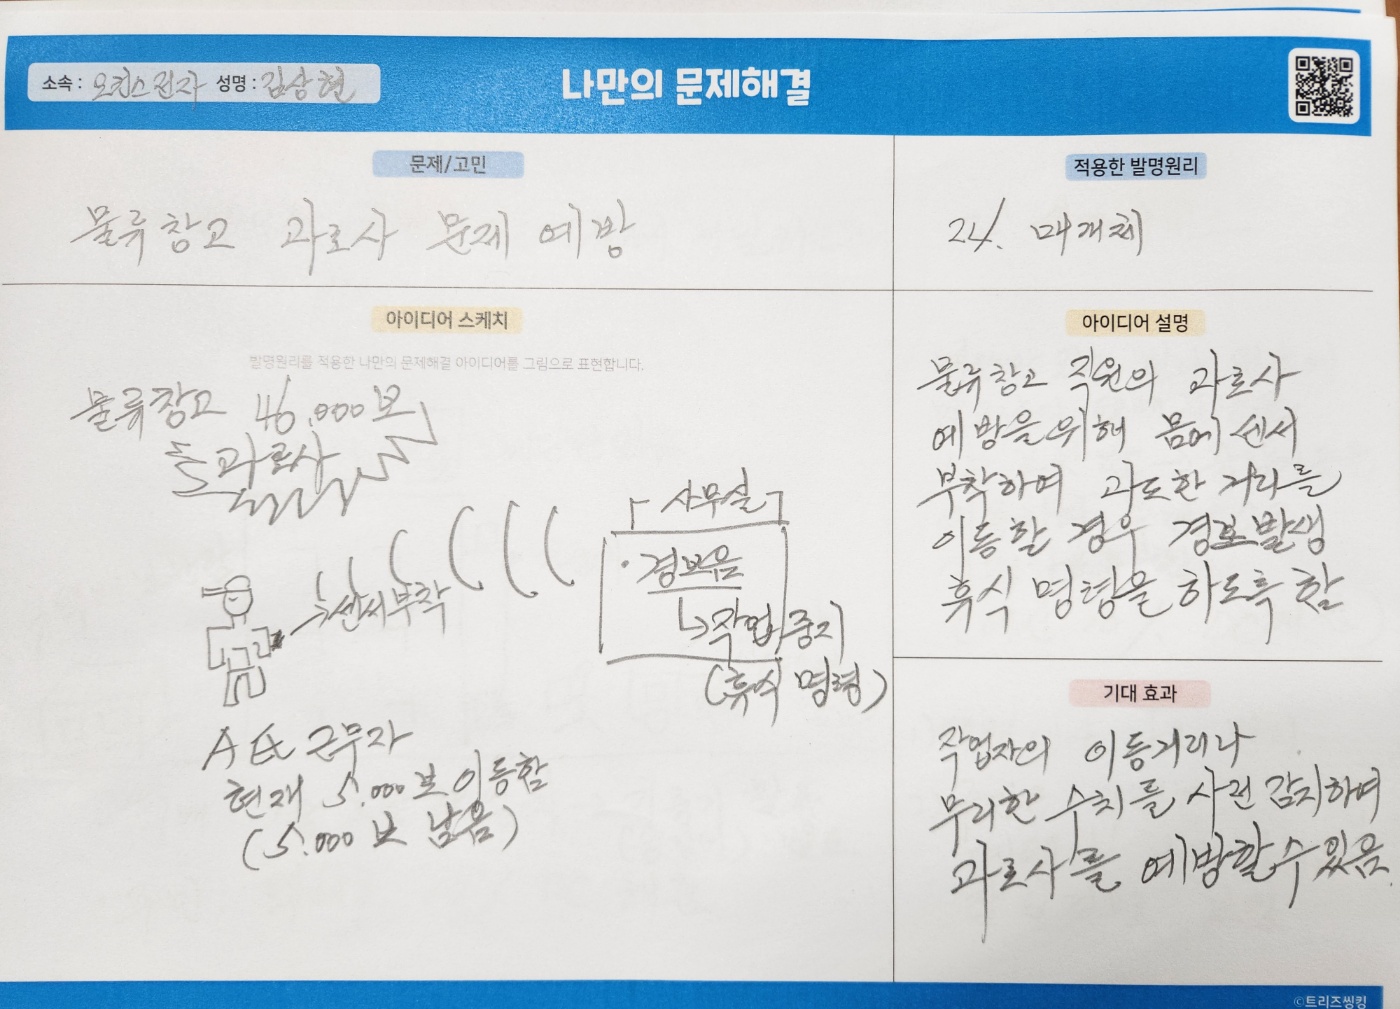 소속 : 오킨스전자 성명 : 김상현
나만의 문제해결
문제/고민
물류창고 과로사 문제 예방
적용한 발명원리
24. 매개체
아이디어 스케치
발명원리를 적용한 나만의 문제해결 아이디어를 그림으로 표현합니다.
물류창고 46,000보
과로사
센서부착
「사무실」
· 경보음
↳작업중지
(휴식 명령)
근무자
현재 5,000보 이동함
(5,000보 남음)
아이디어 설명
물류창고 직원의 과로사
예방을위해 몸에 센서
부착하여 과도한 거리를
이동할 경우 경보발생
휴식 명령을 하도록 함
기대 효과
작업자의 이동거리나
무리한 수치를 사전 감지하여
과로사를 예방할수있음.
©트리즈씽킹